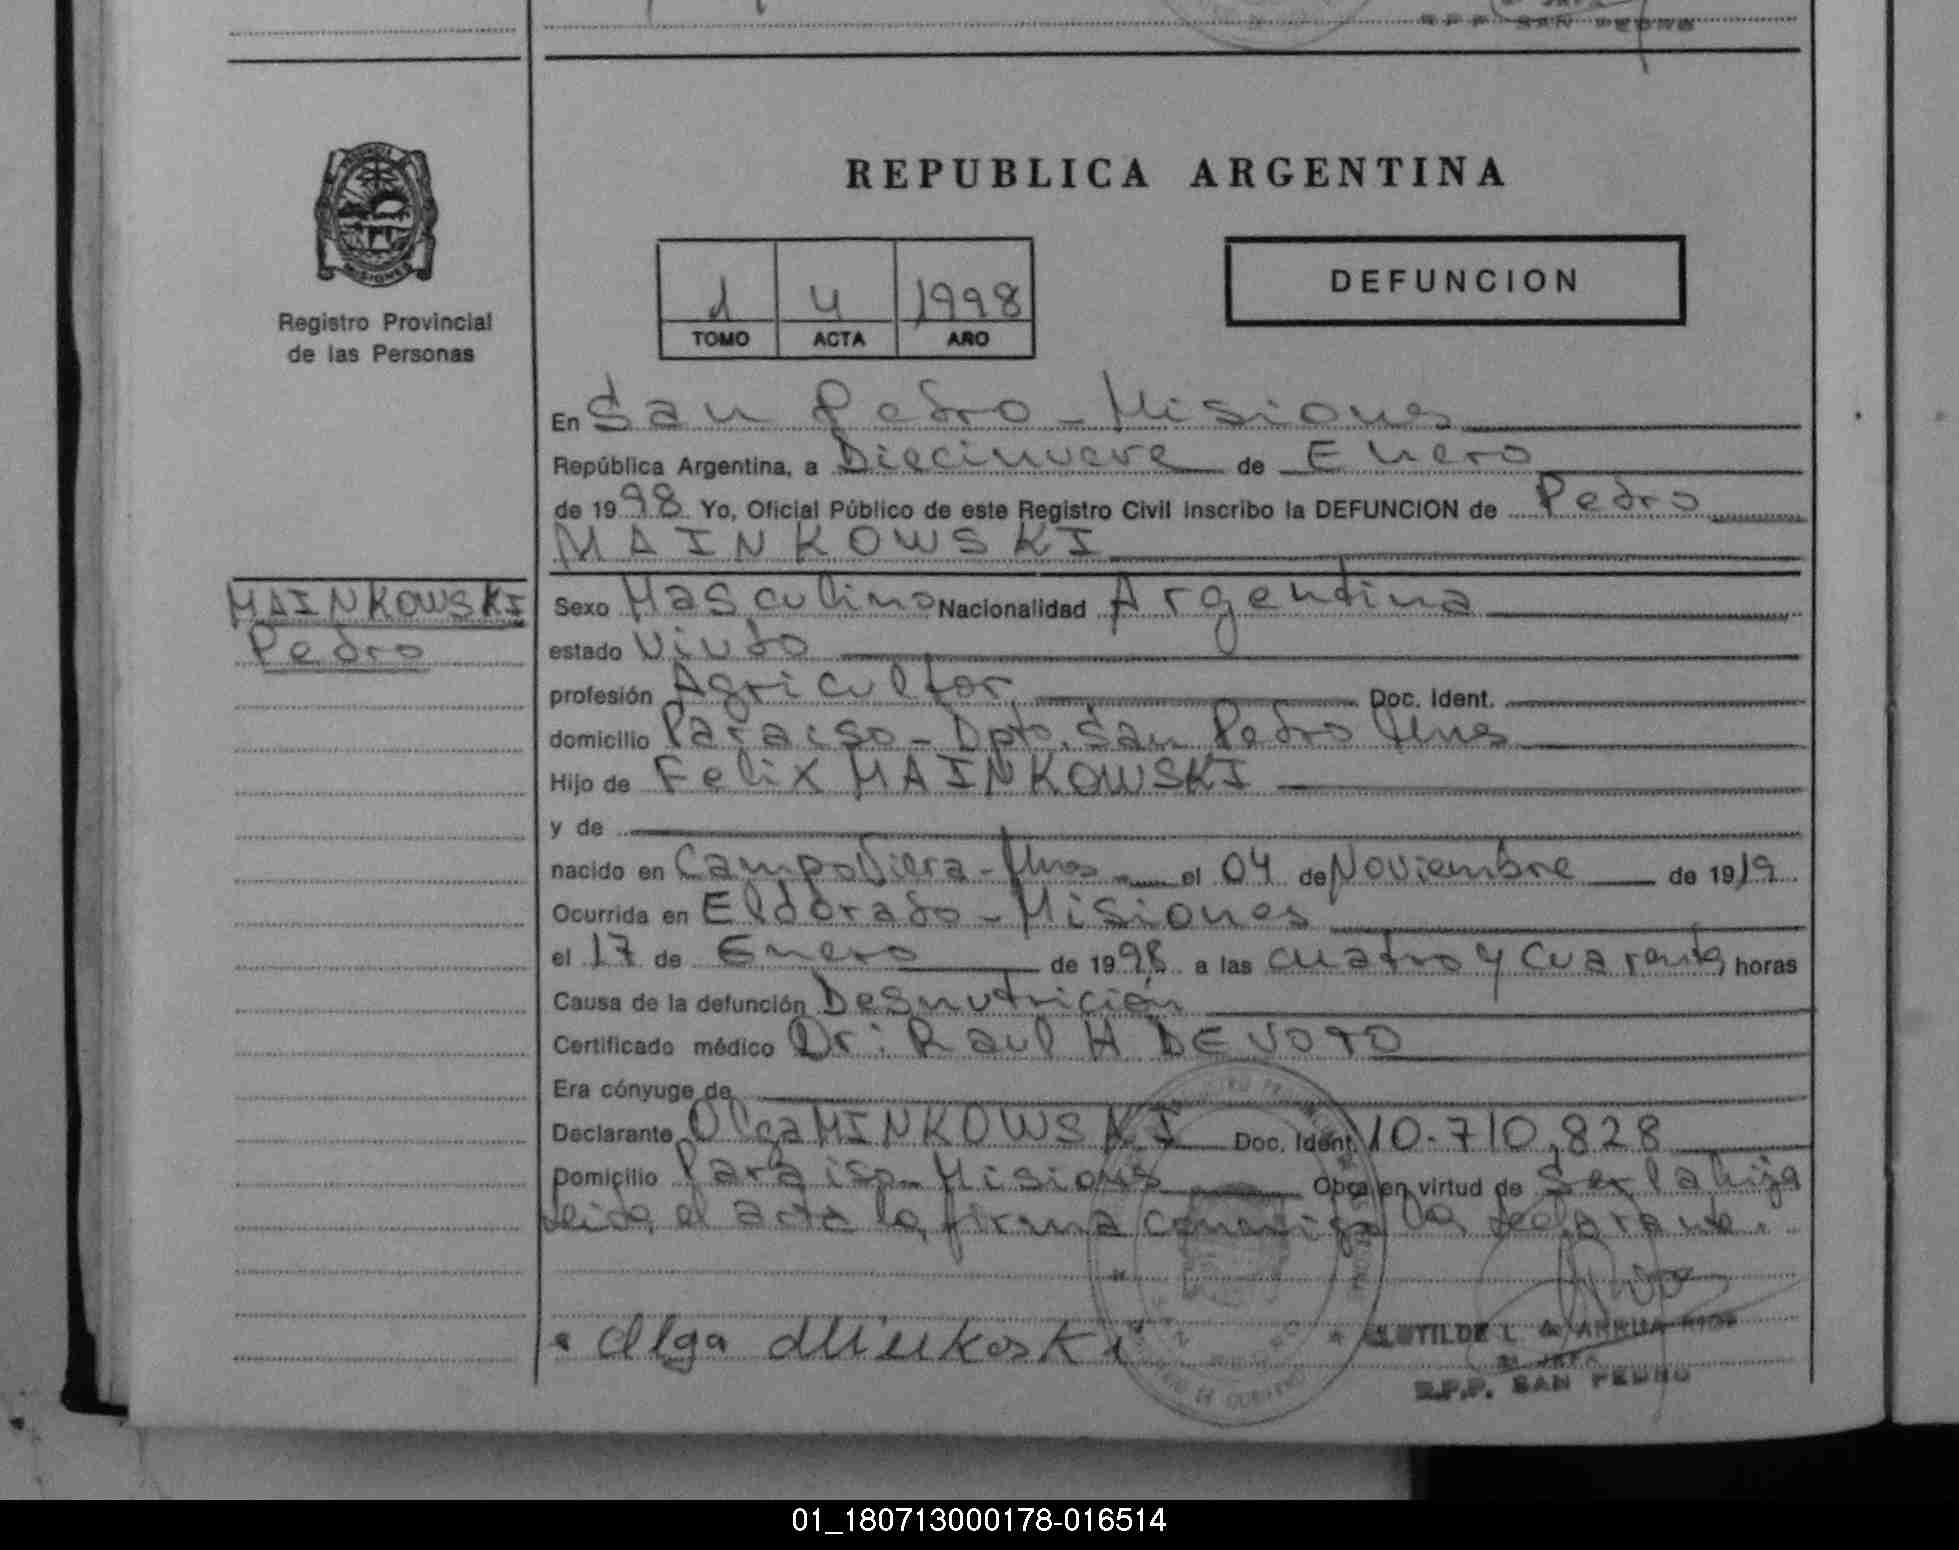 R.P.P. SAN PEDRO
REPUBLICA ARGENTINA
DEFUNCION
1 4 1998
TOMO ACTA AÑO
MISIONES
Registro Provincial
de las Personas
En San Pedro - Misiones
República Argentina, a Diecinueve de Enero
de 1998 Yo, Oficial Público de este Registro Civil inscribo la DEFUNCION de Pedro
MAINKOWSKI
MAINKOWSKI
Pedro
Sexo Masculino Nacionalidad Argentina
estado Viudo
profesión Agricultor Doc. Ident.
domicilio Paraiso - Dpto. San Pedro Mnes
Hijo de Felix MAINKOWSKI
y de
nacido en Campo Viera - Mnes el 04 de Noviembre de 1919
Ocurrida en Eldorado - Misiones
el 17 de Enero de 1998 a las cuatro y cuarenta horas
Causa de la defunción Desnutrición
Certificado médico Dr: Raul H DEVOTO
Era cónyuge de
Declarante Olga MINKOWSKI Doc. Ident. 10.710.828
Domicilio Paraiso - Misiones Obra en virtud de Ser la hija
leida el acta la firma conmigo la declarante.
Olga Minkoski
CLOTILDE L. de ARRUA RIOS
JEFA
R.P.P. SAN PEDRO
01_180713000178-016514